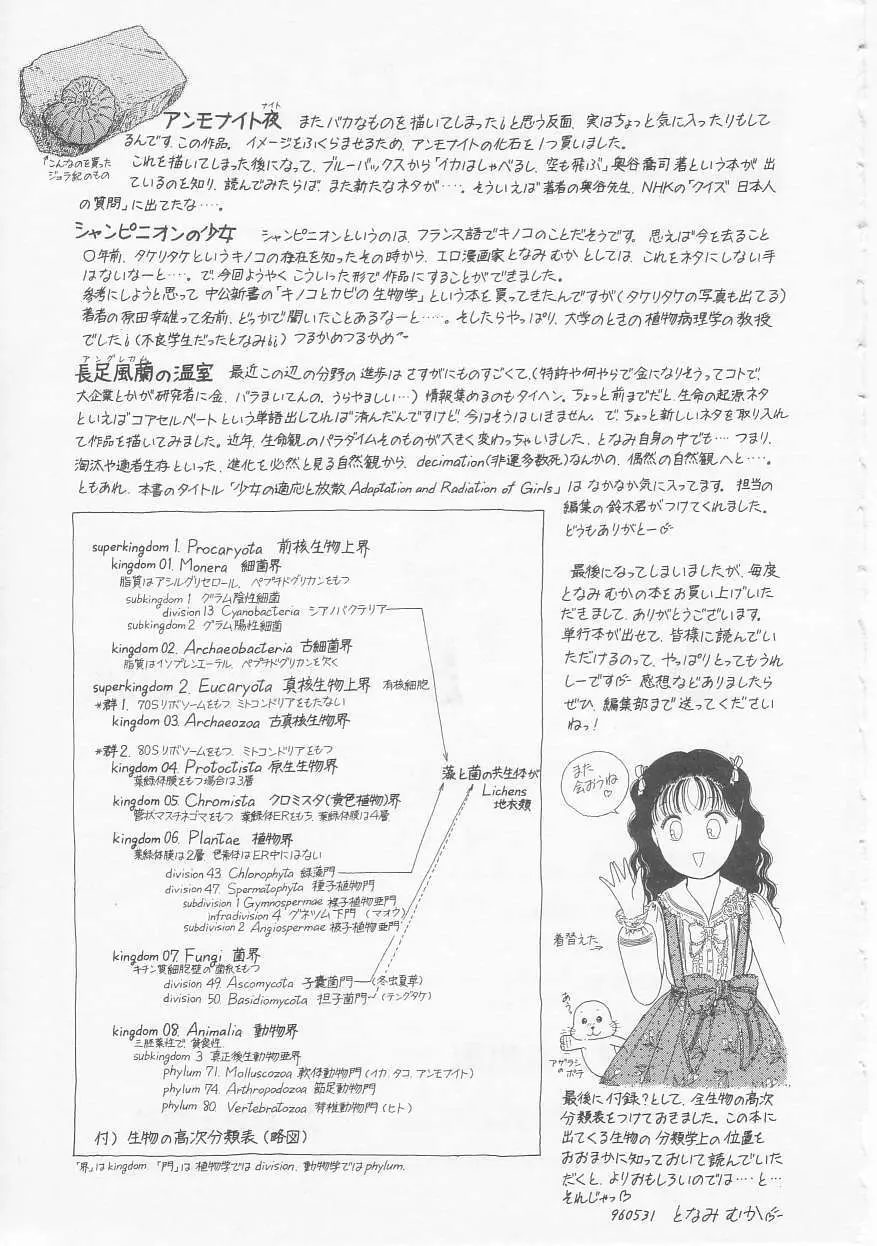 アンモナイト夜 またバカなものを描いてしまった、と思う反面、実はちょっと気に入ったりもして
ナイト
るんです、この作品。イメージをふくらませるため、アンモナイトの化石を1つ買いました。
↑こんなのを買った
ジュラ紀のもの
これを描いてしまった後になって、ブルーバックスから「イカはしゃべるし、空も飛ぶ」奥谷喬司著という本が出
ているのを知り、読んでみたらば、また新たなネタが……。そういえば著者の奥谷先生、NHKの「クイズ日本人
の質問」に出てたな……。
シャンピニオンの少女 シャンピニオンというのは、フランス語でキノコのことだそうです。思えば今を去ること
〇年前、タケリタケというキノコの存在を知ったその時から、エロ漫画家となみむかとしては、これをネタにしない手
はないなーと……。で、今回ようやくこういった形で作品にすることができました。
参考にしようと思って中公新書の「キノコとカビの生物学」という本を買ってきたんですが(タケリタケの写真も出てる)
著者の原田幸雄って名前、どっかで聞いたことあるなーと……。そしたらやっぱり、大学のときの植物病理学の教授
でした¡(不良学生だったとなみ¡¡)つるかめつるかめ~
アングレカム
長足風蘭の温室 最近この辺の分野の進歩はさすがにものすごくて、(特許や何やらで金になりそうってコトで、
大企業とかが研究者に金、バラまいてんの。うらやましい…)情報集めるのもタイヘン。ちょっと前までだと、生命の起源ネタ
といえばコアセルベートという単語出してれば済んだんですけど、今はそうはいきません。で、ちょっと新しいネタを取り入れ
て作品を描いてみました。近年、生命観のパラダイムそのものが大きく変わっちゃいました、となみ自身の中でも…つまり、
淘汰や適者生存といった、進化を必然と見る自然観から、decimation(非運多数死)なんかの、偶然の自然観へと……。
ともあれ、本書のタイトル「少女の適応と放散 Adaptation and Radiation of Girls」はなかなか気に入ってます。担当の
編集の鈴木君がつけてくれました。
どうもありがとー
superkingdom 1. Procaryota 前核生物上界
kingdom 01. Monera 細菌界
脂質はアシルグリセロール、ペプチドグリカンをもつ
subkingdom 1 グラム陰性細菌
division 13 Cyanobacteria シアノバクテリア
subkingdom 2 グラム陽性細菌
kingdom 02. Archaeobacteria 古細菌界
脂質はイソプレンエーテル、ペプチドグリカンを欠く
superkingdom 2. Eucaryota 真核生物上界 有核細胞
*群1. 70Sリボソームをもつ、ミトコンドリアをもたない
kingdom 03. Archaeozoa 古真核生物界
*群2. 80Sリボソームをもつ、ミトコンドリアをもつ
kingdom 04. Protoctista 原生生物界
葉緑体膜をもつ場合は3層
kingdom 05. Chromista クロミスタ(黄色植物)界
管状マスチネゴマをもつ 葉緑体ERをもち、葉緑体膜は4層
kingdom 06. Plantae 植物界
葉緑体膜は2層 色素体はER中にはない
division 43 Chlorophyta 緑藻門
division 47. Spermatophyta 種子植物門
subdivision 1 Gymnospermae 裸子植物亜門
infradivision 4 グネツム下門 (マオウ)
subdivision 2 Angiospermae 被子植物亜門
kingdom 07. Fungi 菌界
キチン質細胞壁の菌糸をもつ
division 49. Ascomycota 子嚢菌門 (冬虫夏草)
division 50. Basidiomycota 担子菌門 (テングタケ)
kingdom 08. Animalia 動物界
三胚葉性で、貪食性
subkingdom 3 真正後生動物亜界
phylum 71. Molluscozoa 軟体動物門(イカ、タコ、アンモナイト)
phylum 74. Arthropodozoa 節足動物門
phylum 80. Vertebratozoa 脊椎動物門(ヒト)
藻と菌の共生体が
Lichens
地衣類
付)生物の高次分類表(略図)
「界」はkingdom.「門」は植物学ではdivision、動物学ではphylum.
最後になってしまいましたが、毎度
となみむかの本をお買い上げいた
だきまして、ありがとうございます。
単行本が出せて、皆様に読んでい
ただけるのって、やっぱりとってもうれ
しーです 感想などありましたら
ぜひ、編集部まで送ってください
ねっ!
また
会おうね
♡
着替えた→
あう
アザラシ
のポテ
最後に付録?として、全生物の高次
分類表をつけておきました。この本に
出てくる生物の分類学上の位置を
おおまかに知っておいて読んでいた
だくと、よりおもしろいのでは……と…
それじゃっ
960531 となみむか